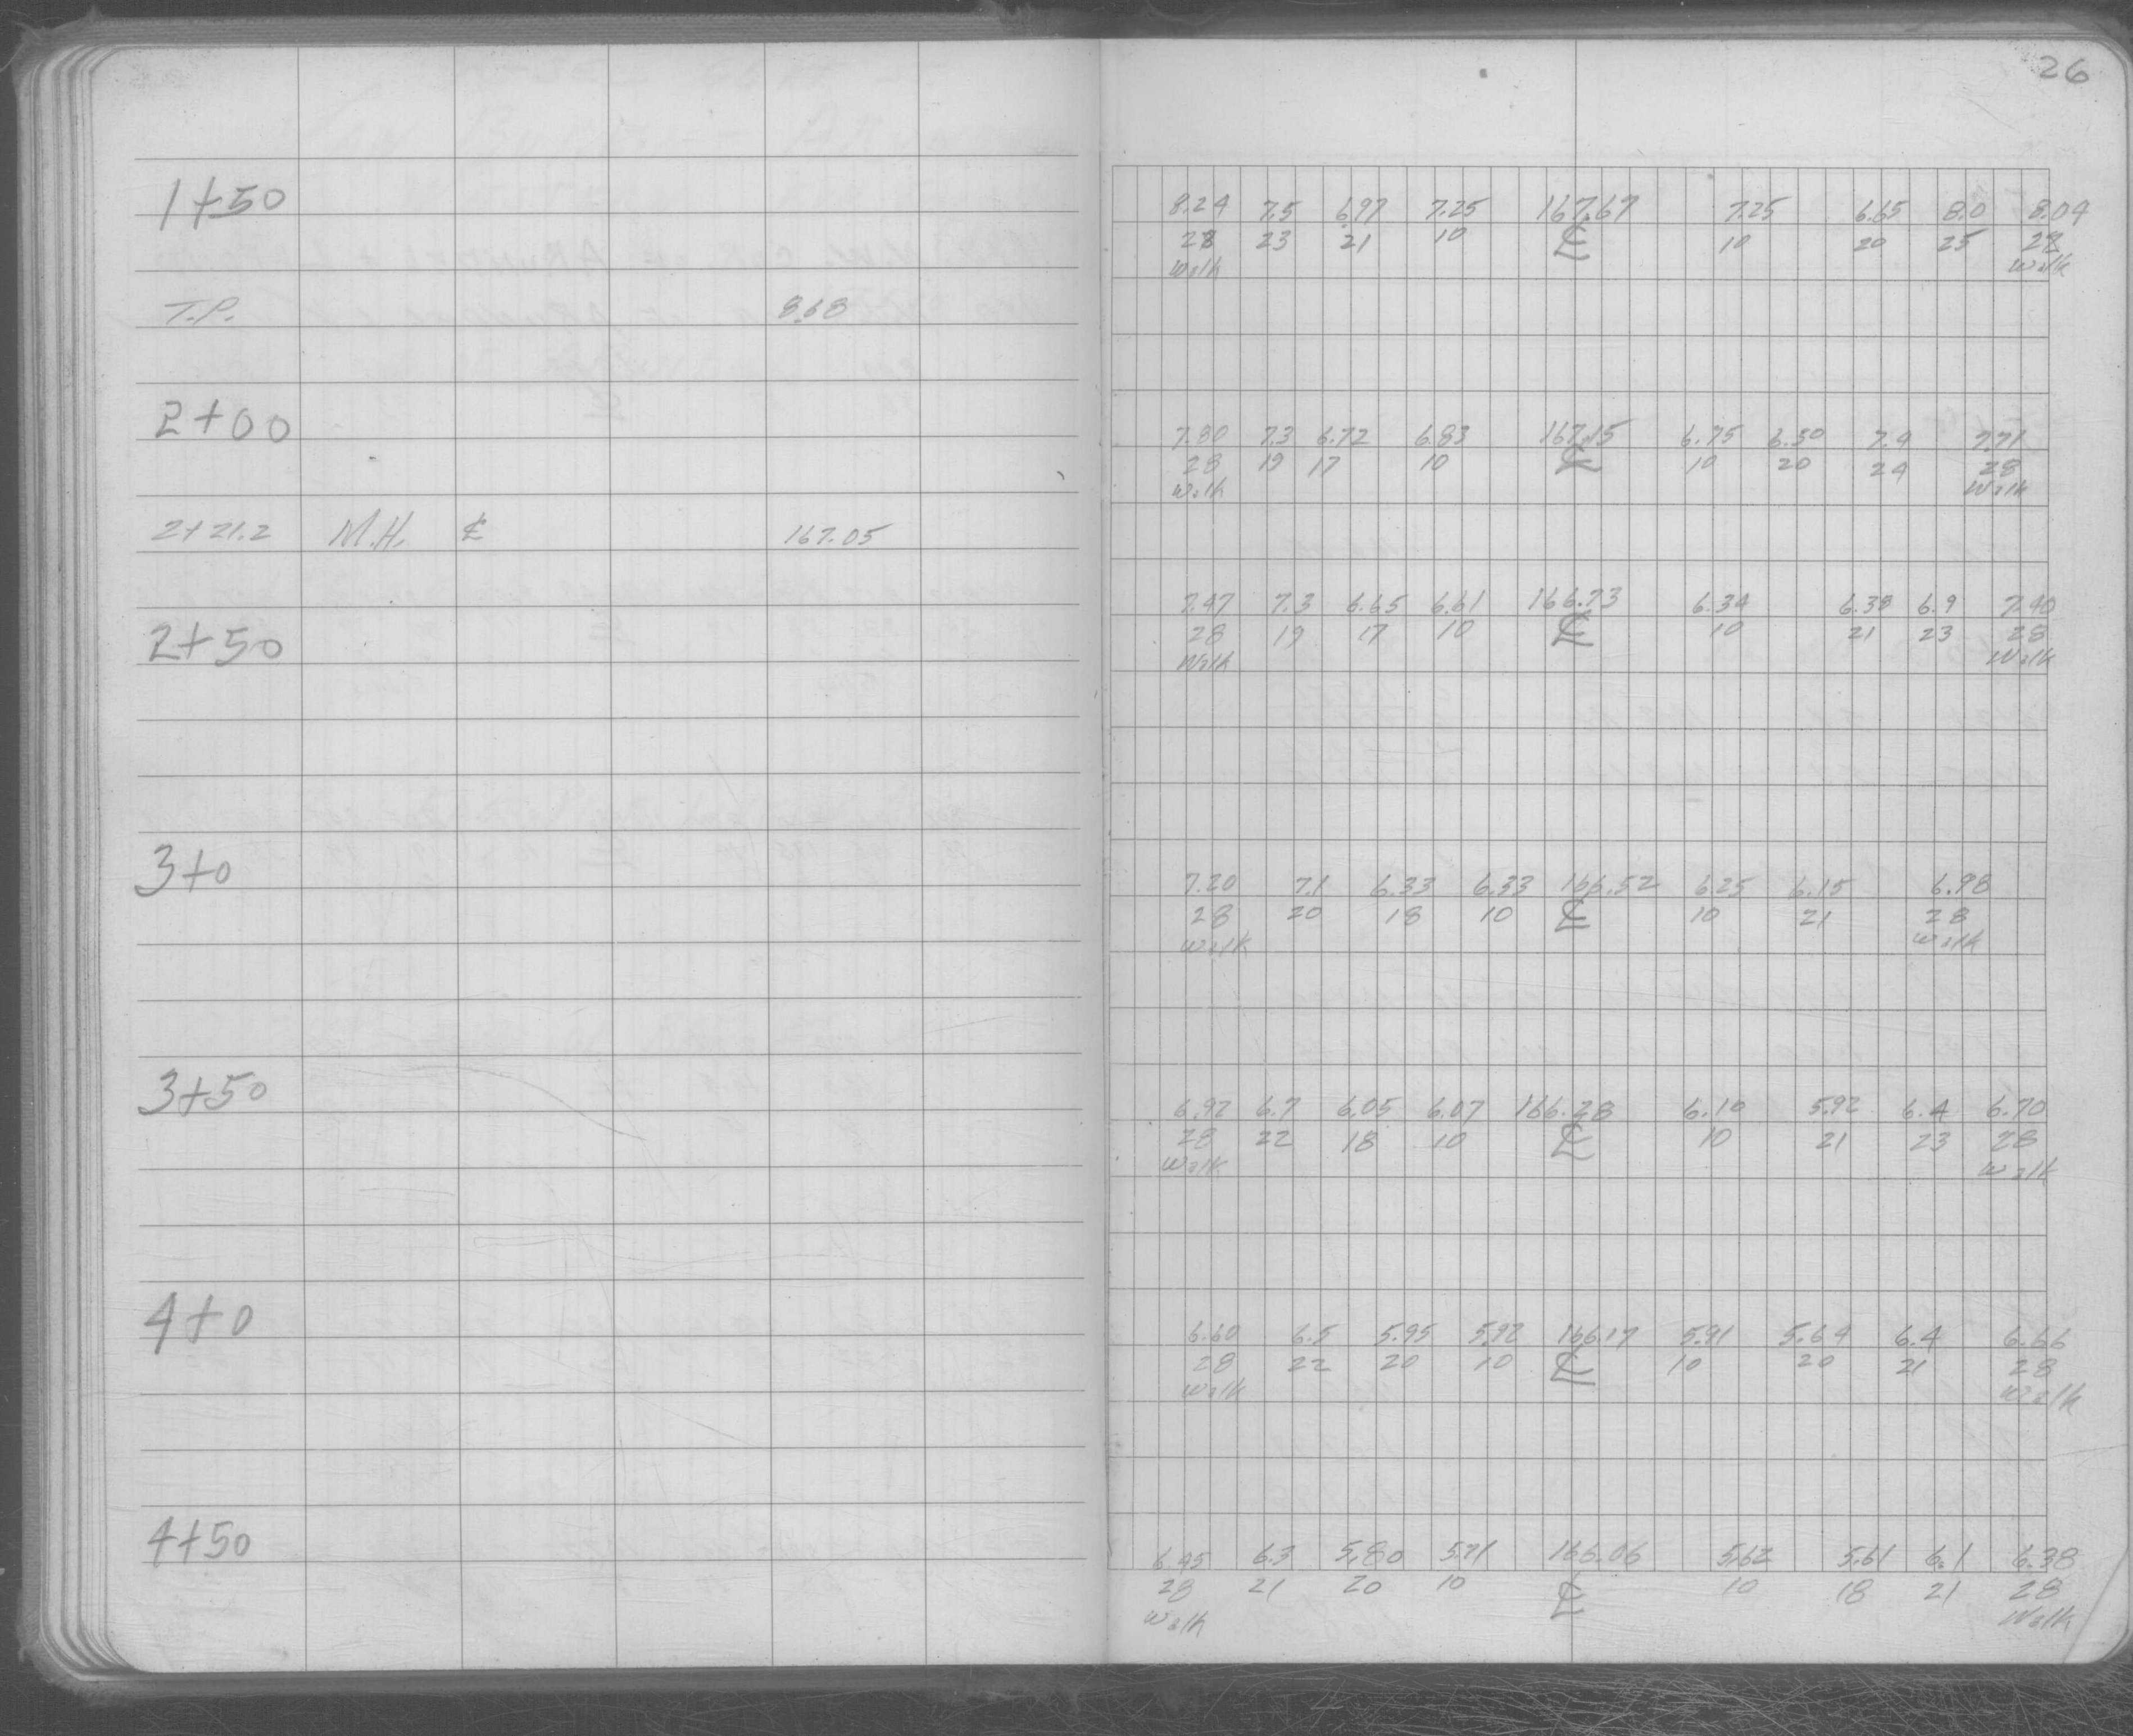 26
1+50
8.24 7.5 6.97 7.25 167.67 7.25 6.65 8.0 8.04
28 23 21 10 ℄ 10 20 25 28
Walk Walk
T.P. 8.68
2+00
7.80 7.3 6.72 6.83 167.15 6.75 6.50 7.4 7.71
28 19 17 10 ℄ 10 20 24 28
Walk Walk
2+21.2 M.H. ℄ 167.05
7.47 7.3 6.65 6.61 166.73 6.34 6.38 6.9 7.40
2+50
28 19 17 10 ℄ 10 21 23 28
Walk Walk
3+0
7.20 7.1 6.33 6.33 166.52 6.25 6.15 6.98
28 20 18 10 ℄ 10 21 28
Walk Walk
3+50
6.92 6.7 6.05 6.07 166.28 6.10 5.92 6.4 6.70
28 22 18 10 ℄ 10 21 23 28
Walk Walk
4+0
6.60 6.5 5.95 5.92 166.17 5.91 5.64 6.4 6.66
28 22 20 10 ℄ 10 20 21 28
Walk Walk
4+50
6.45 6.3 5.80 5.71 166.06 5.62 5.61 6.1 6.38
28 21 20 10 ℄ 10 18 21 28
Walk Walk